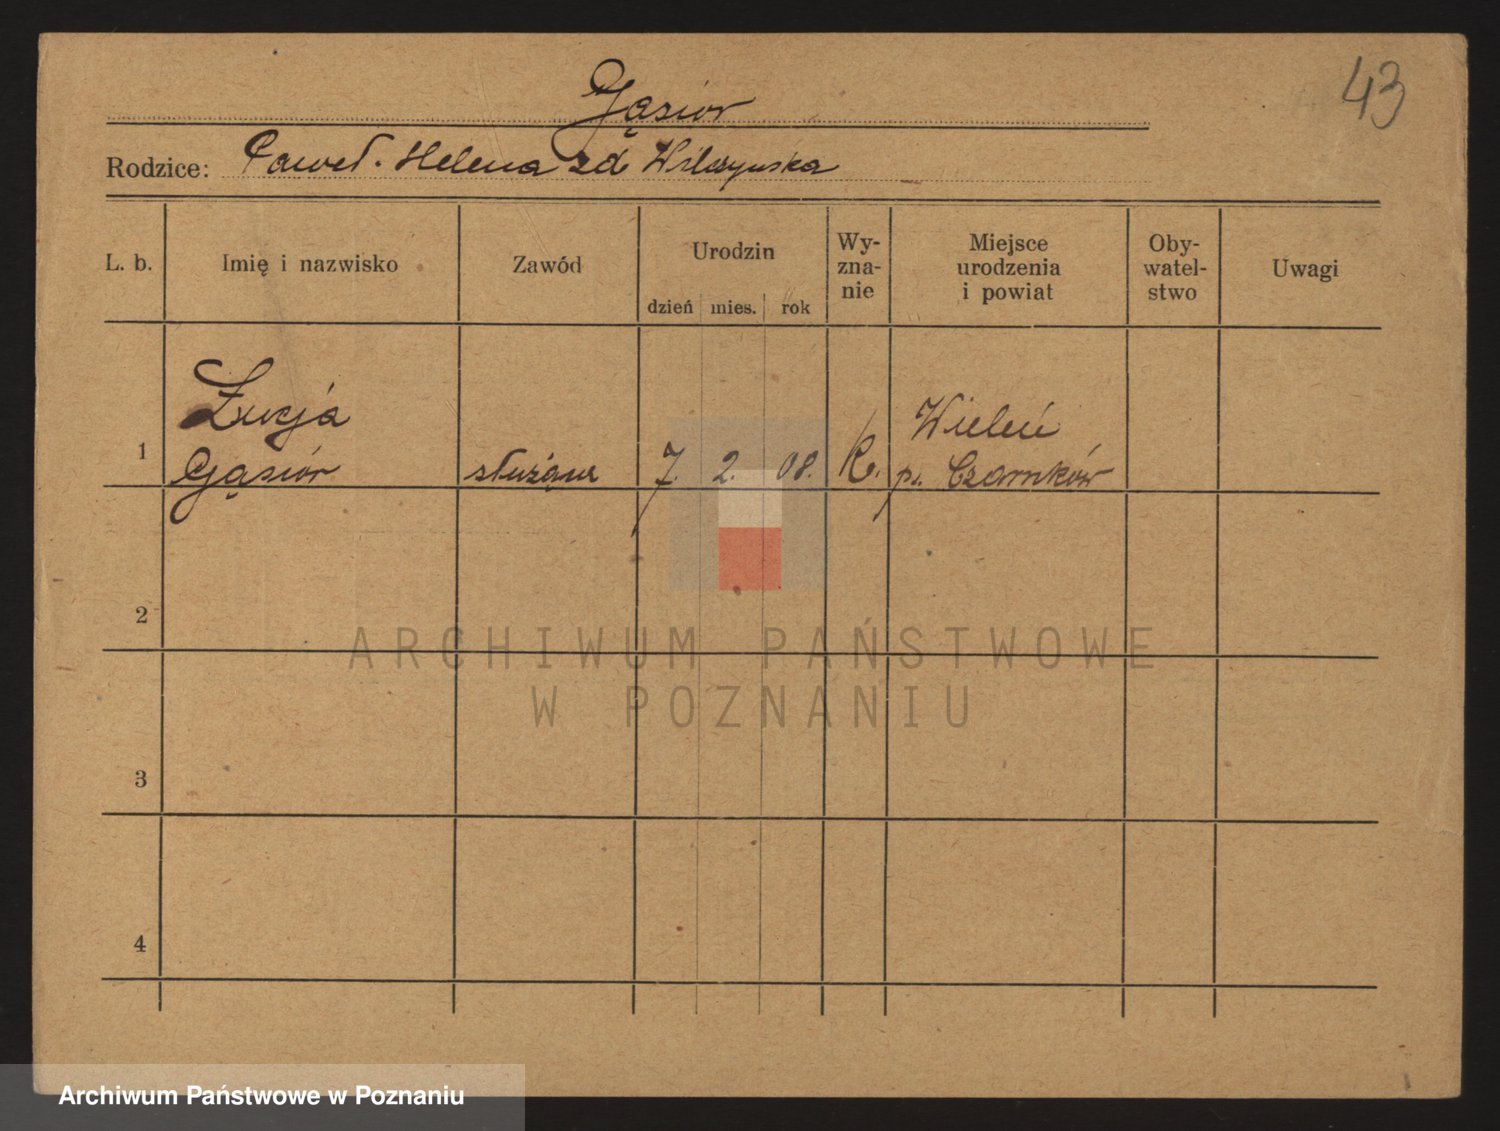 43
Gąsior
Rodzice: Paweł. Helena zd Wilczynska
L. b. Imię i nazwisko Zawód Urodzin dzień mies. rok Wy-zna-nie Miejsce urodzenia i powiat Oby-watel-stwo Uwagi
Łucja Wieleń
1 Gąsiór służąca 7. 2. 08. K. p. Czarnków
2
3
4
ARCHIWUM PAŃSTWOWE
W POZNANIU
Archiwum Państwowe w Poznaniu